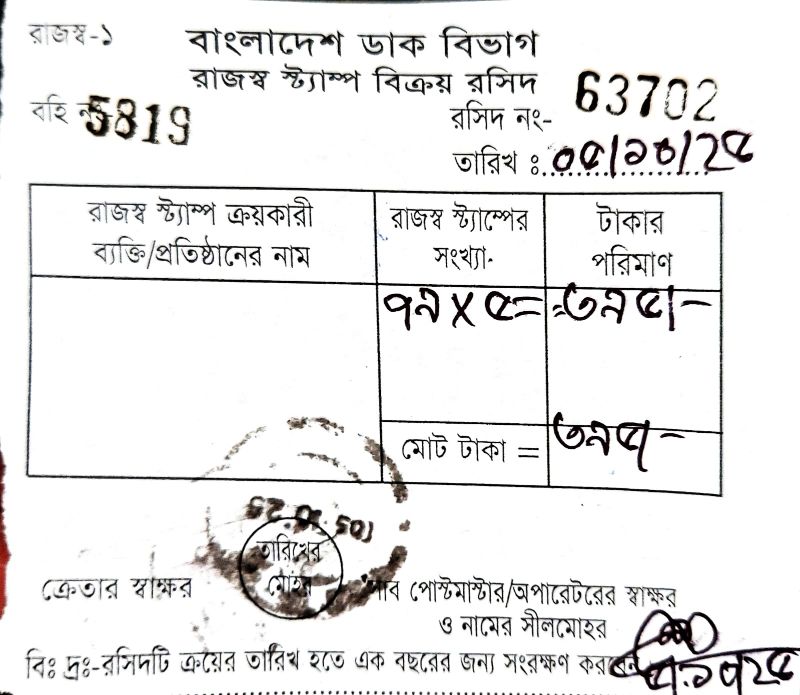 রাজস্ব-১
বাংলাদেশ ডাক বিভাগ
রাজস্ব স্ট্যাম্প বিক্রয় রসিদ
বহি নং 5819
রসিদ নং- 63702
তারিখ ঃ ০৫/১০/২৫
রাজস্ব স্ট্যাম্প ক্রয়কারী ব্যক্তি/প্রতিষ্ঠানের নাম
রাজস্ব স্ট্যাম্পের সংখ্যা
টাকার পরিমাণ
৭৯ X ৫=
=৩৯৫/-
মোট টাকা =
৩৯৫/-
তারিখের
মোহর
ক্রেতার স্বাক্ষর
সাব পোস্টমাস্টার/অপারেটরের স্বাক্ষর
ও নামের সীলমোহর
বিঃ দ্রঃ-রসিদটি ক্রয়ের তারিখ হতে এক বছরের জন্য সংরক্ষণ করবেন